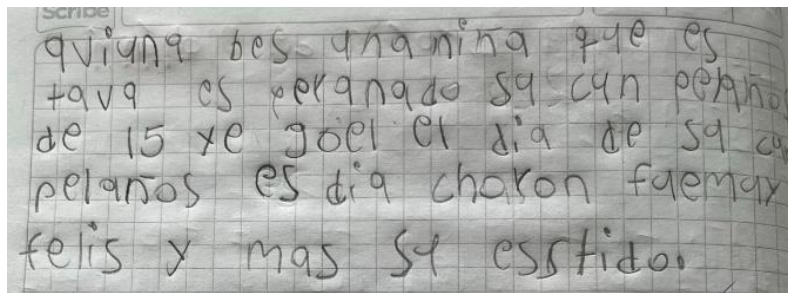 Scribe
aviuna bes una niña que es
tava es peranado su cun pelaño
de 15 ye goel el dia de su cu
pelaños es dia charon fuemuy
felis y mas su esstido.